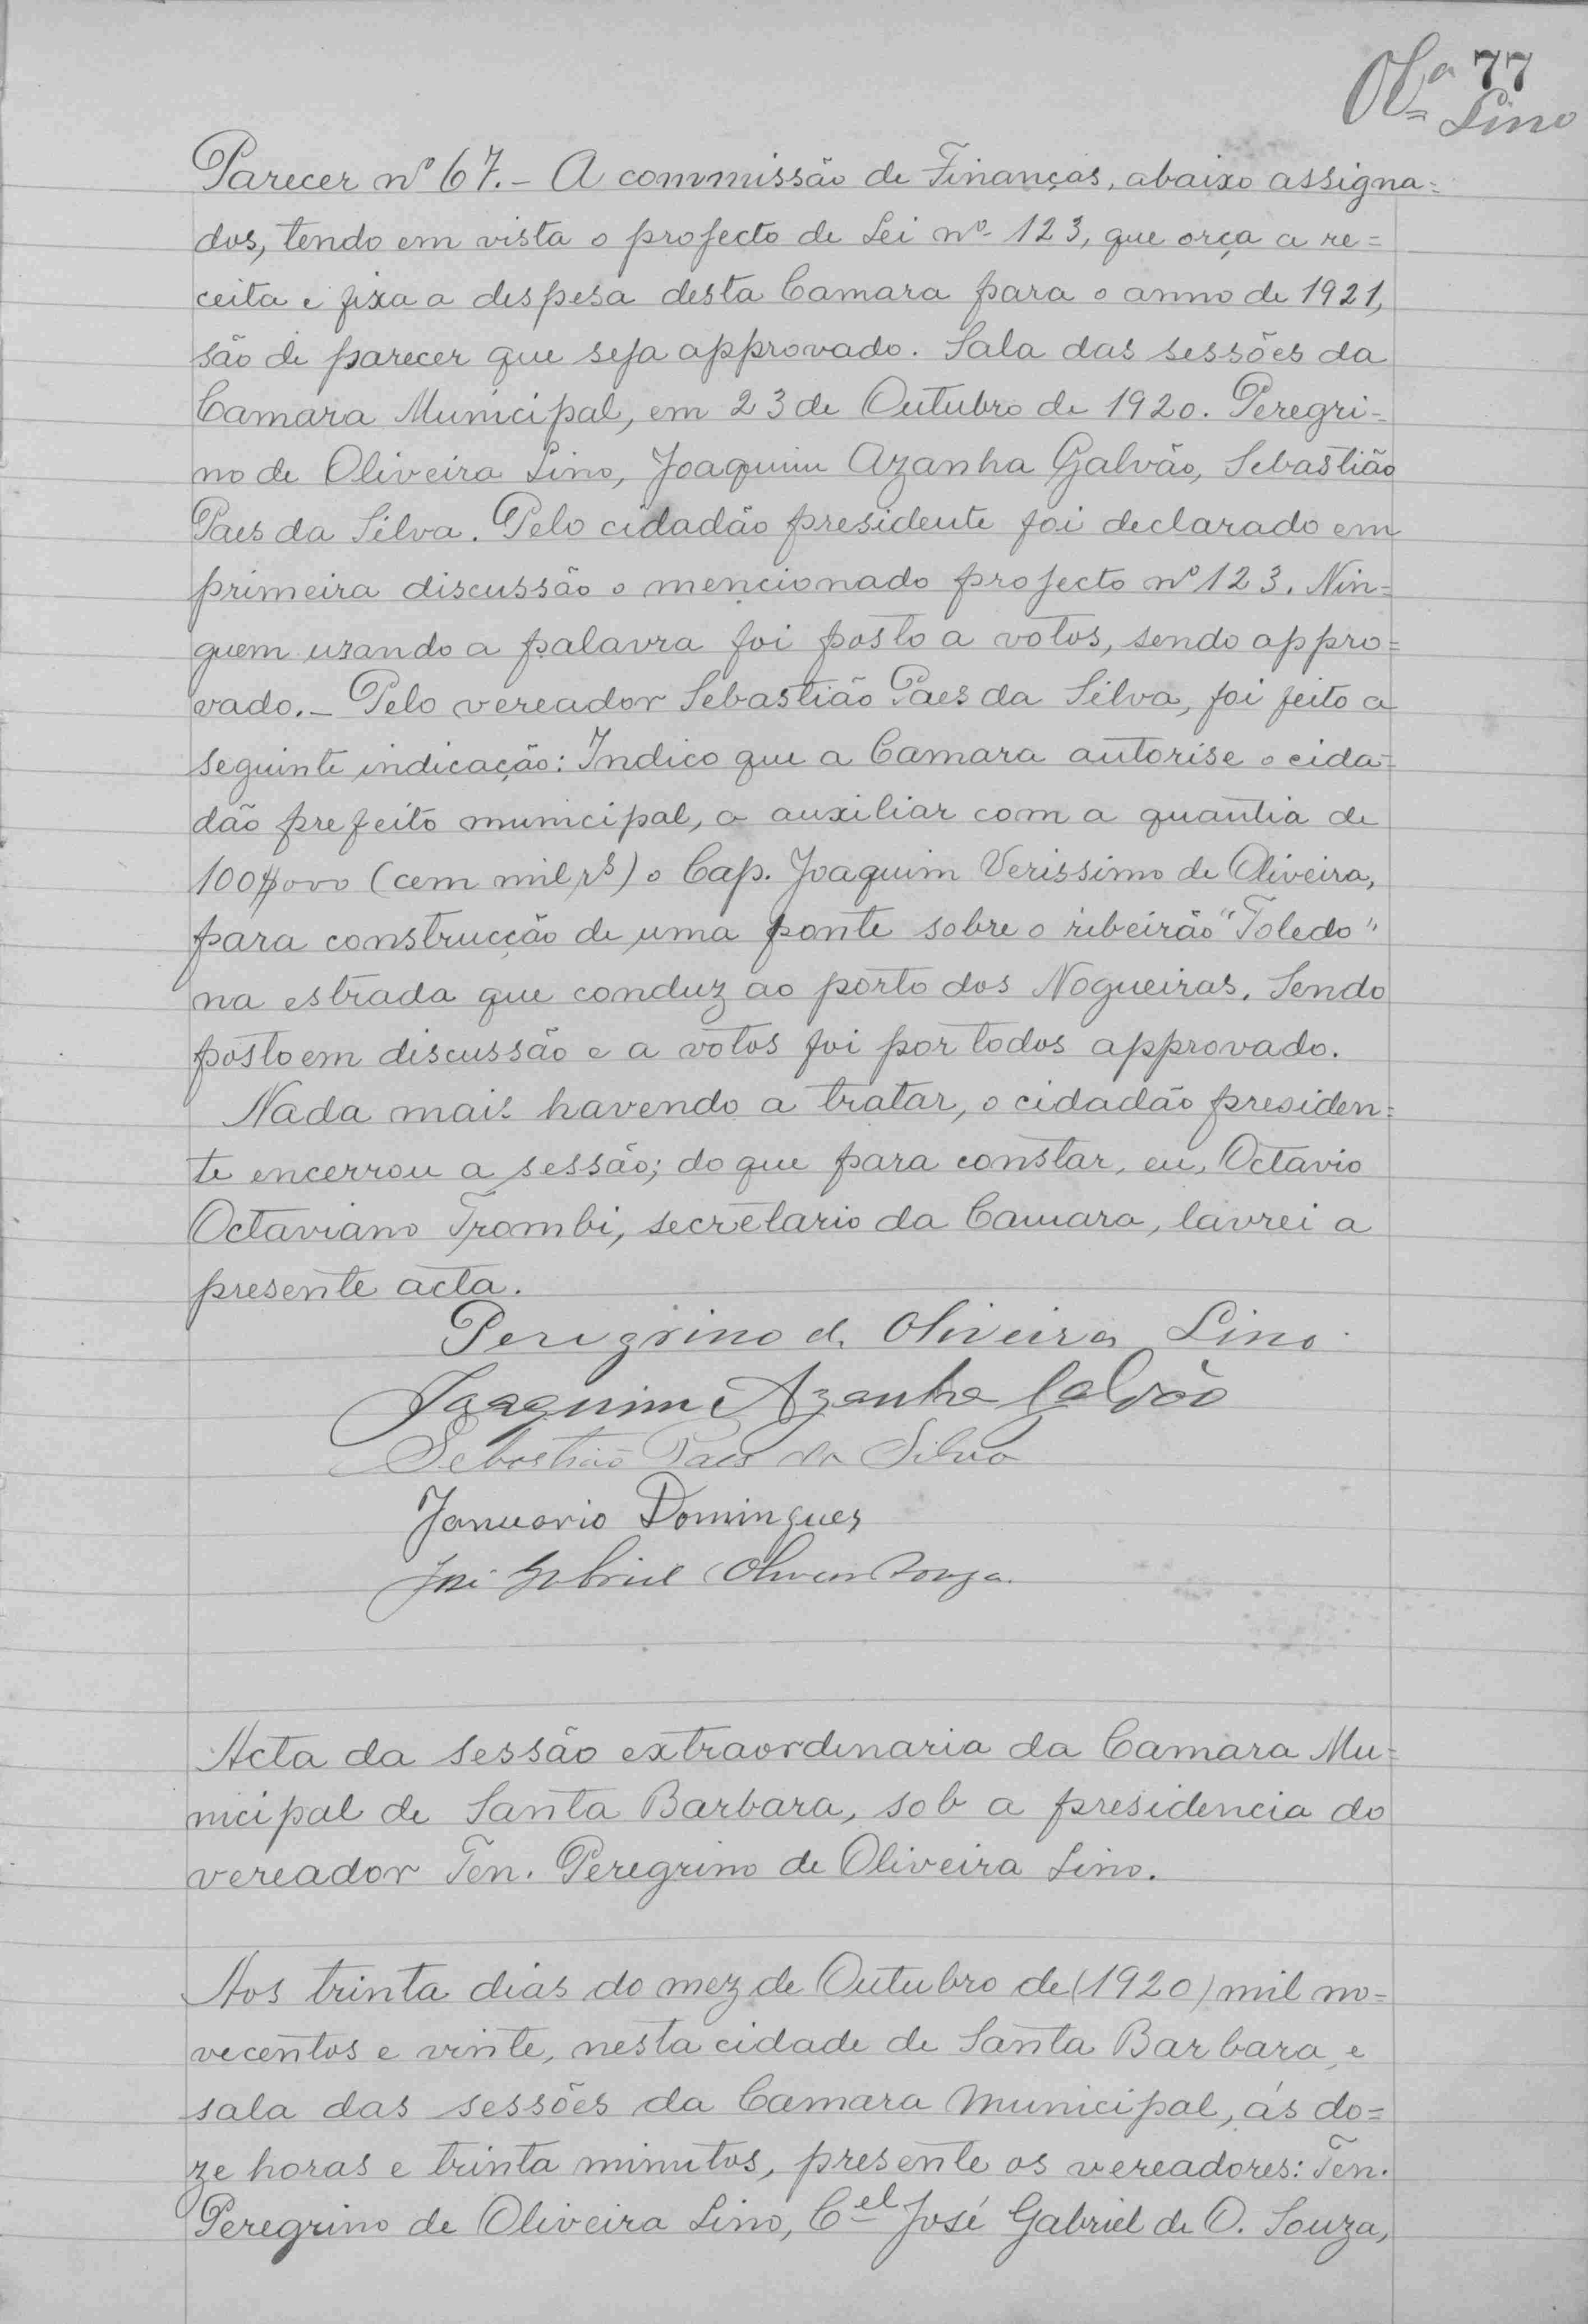 Olª 77
Lino
Parecer nº 67. - A commissão de Finanças, abaixo assigna=
dos, tendo em vista o projecto de Lei nº 123, que orça a re=
ceita e fixa a despesa desta Camara para o anno de 1921,
são de parecer que seja approvado. Sala das sessões da
Camara Municipal, em 23 de Outubro de 1920. Peregri-
no de Oliveira Lino, Joaquim Azanha Galvão, Sebastião
Paes da Silva. Pelo cidadão presidente foi declarado em
primeira discussão o mencionado projecto nº 123. Nin=
guem uzando a palavra foi posto a votos, sendo appro=
vado. - Pelo vereador Sebastião Paes da Silva, foi feito a
seguinte indicação: Indico que a Camara autorise o cida=
dão prefeito municipal, a auxiliar com a quantia de
100$000 (cem mil rs) o Cap. Joaquim Verissimo de Oliveira,
para construcção de uma ponte sobre o ribeirão "Toledo"
na estrada que conduz ao porto dos Nogueiras. Sendo
posto em discussão e a votos foi por todos approvado.
Nada mais havendo a tratar, o cidadão presiden=
te encerrou a sessão; do que para constar, eu, Octavio
Octaviano Trombi, secretario da Camara, lavrei a
presente acta.
Peregrino d. Oliveira Lino
Joaquim Azanha Galvão
Sebastião Paes da Silva
Januario Domingues
José Gabriel Oliveira Souza.
Acta da sessão extraordinaria da Camara Mu=
nicipal de Santa Barbara, sob a presidencia do
vereador Ten. Peregrino de Oliveira Lino.
Aos trinta dias do mez de Outubro de (1920) mil no=
vecentos e vinte, nesta cidade de Santa Barbara, e
sala das sessões da Camara Municipal, ás do=
ze horas e trinta minutos, presente os vereadores: Ten.
Peregrino de Oliveira Lino, Cel José Gabriel de O. Souza,